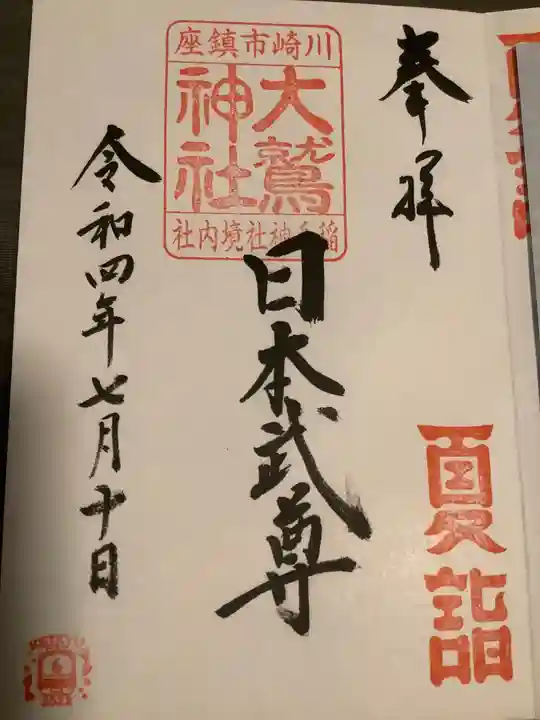 奉拝
夏詣
川崎市鎮座
大鷲神社
稲毛神社境内社
日本武尊
令和四年七月十日